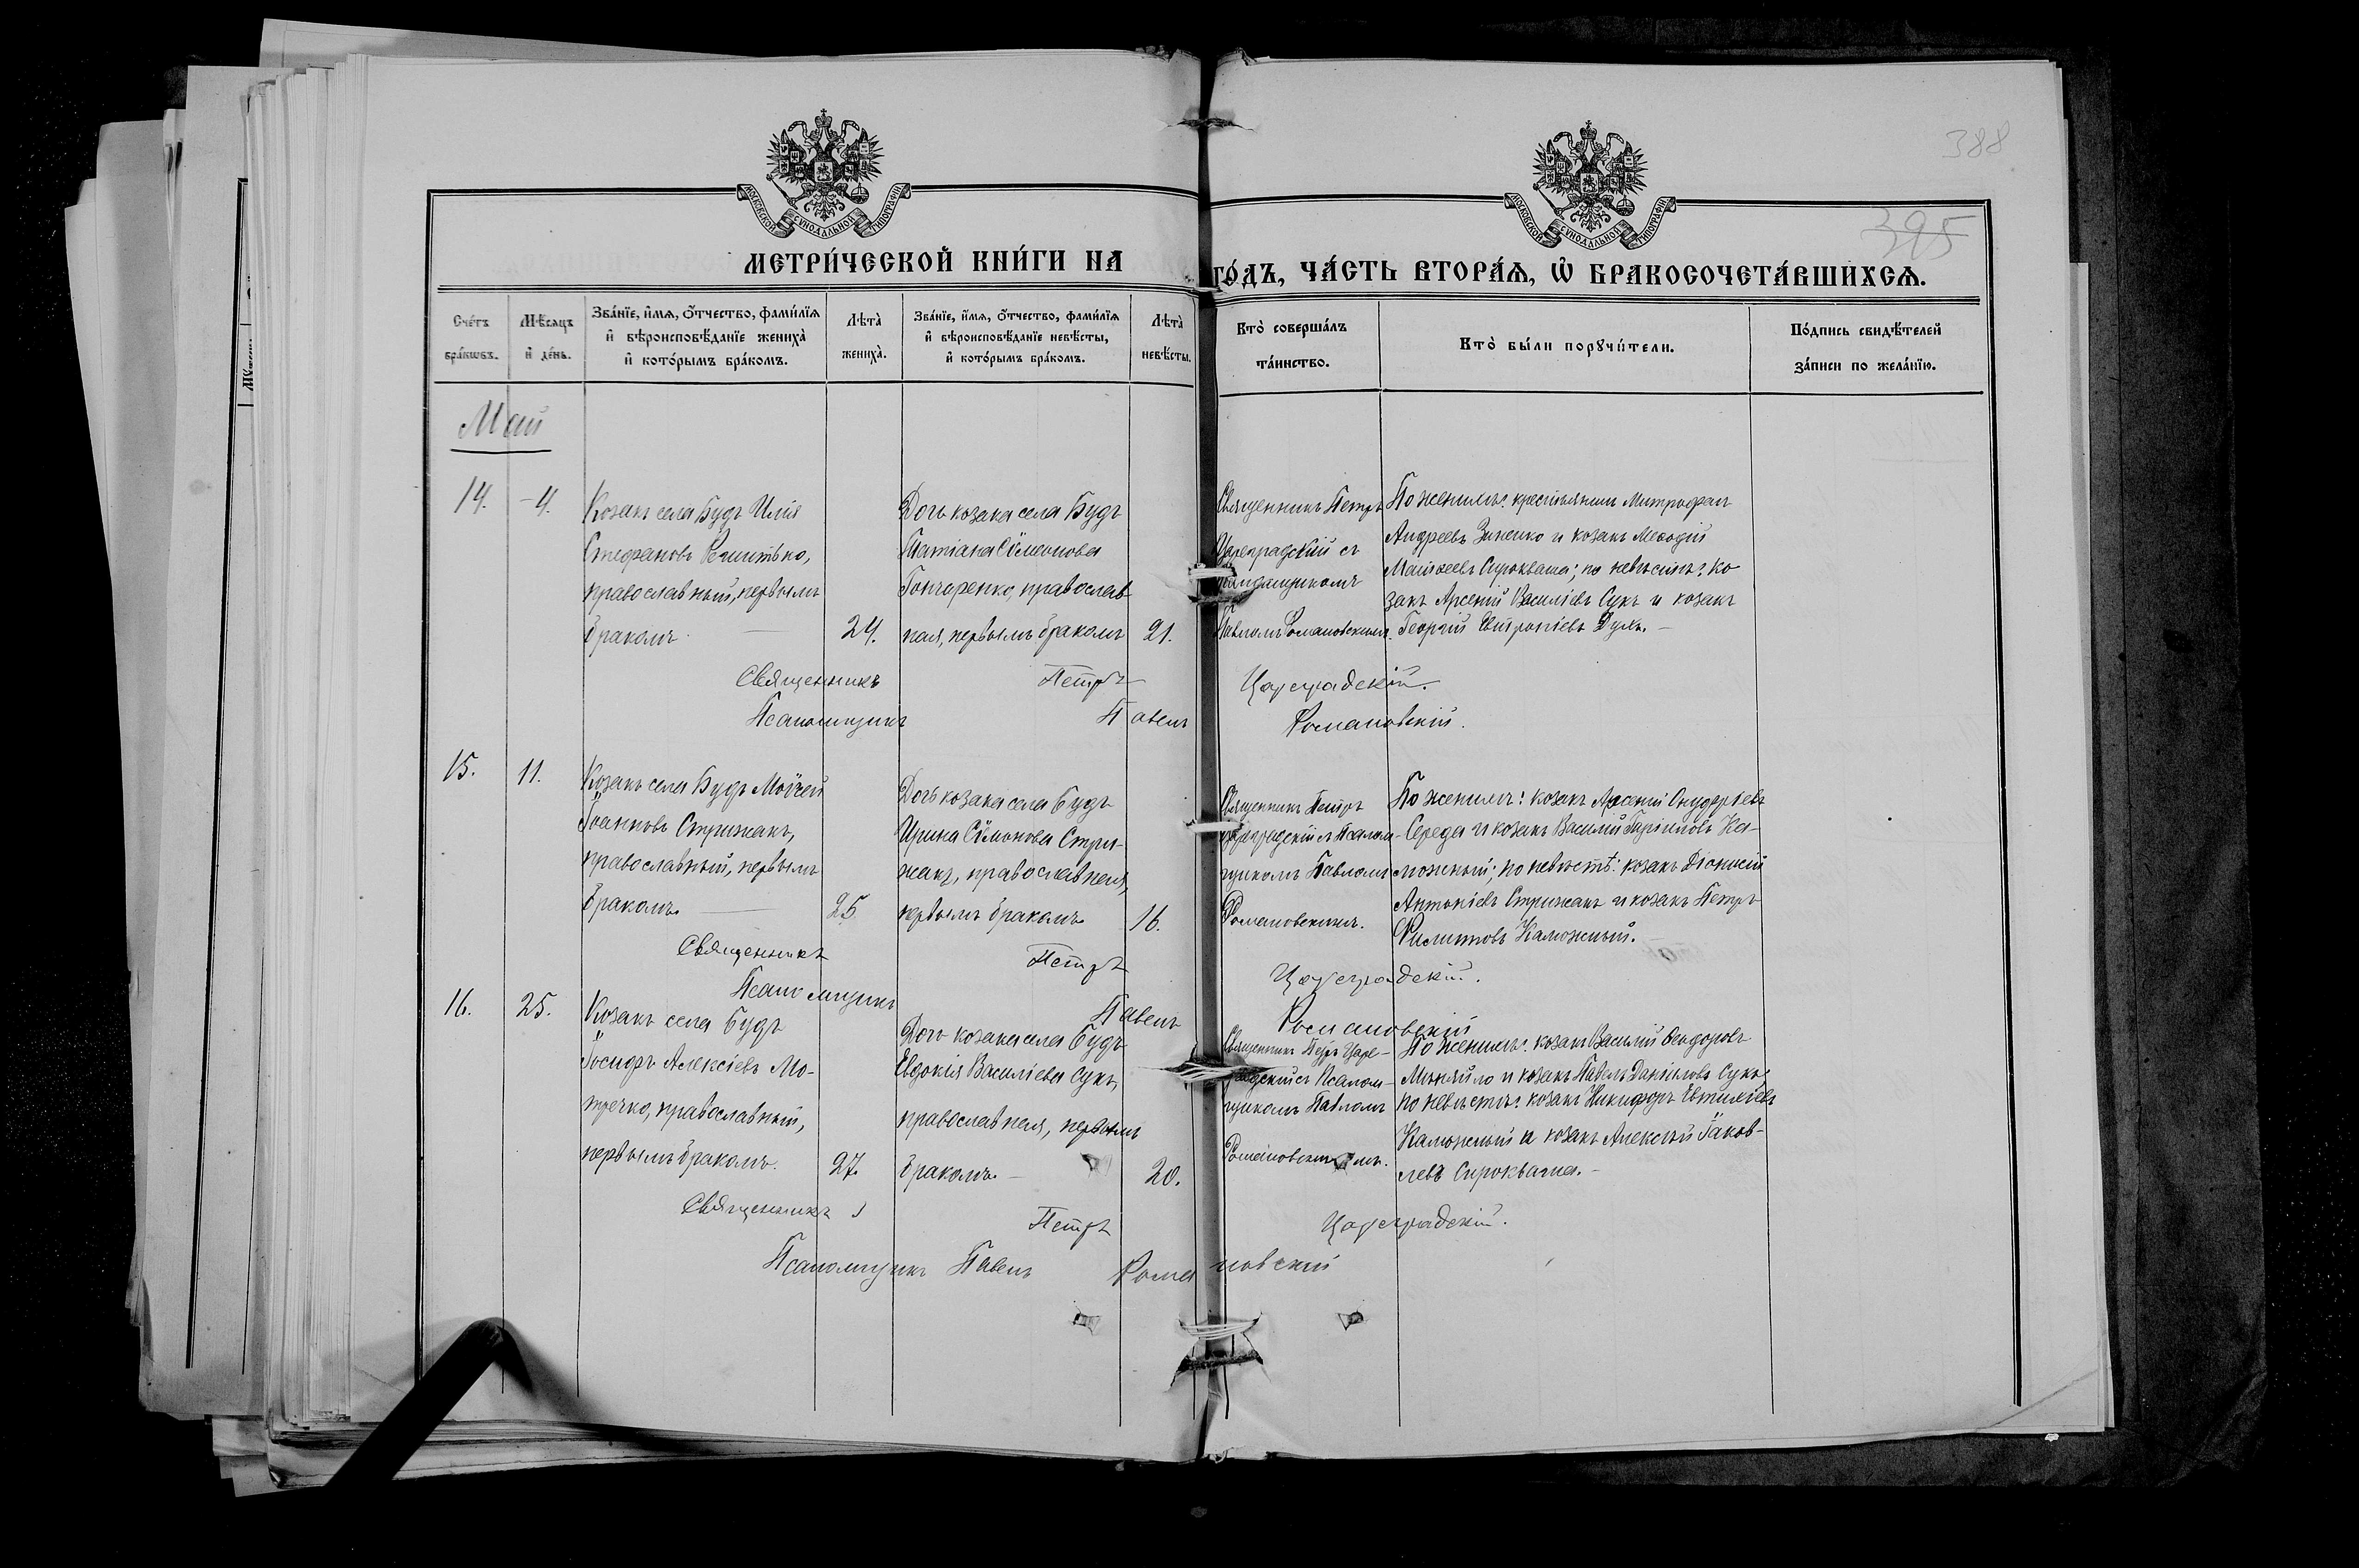 388
395
МОСКОВСКОЙ СѴНОДАЛЬНОЙ ТИПОГРАФІИ
МОСКОВСКОЙ СѴНОДАЛЬНОЙ ТИПОГРАФІИ
МЕТРИ́ЧЕСКОЙ КНИ́ГИ НА
ГО́ДЪ, ЧА́СТЬ ВТОРА́Ѧ, Ѡ҆ БРАКОСОЧЕТА́ВШИХСѦ.
Сче́тъ бра́кѡвъ.
Мѣ́сѧцъ и҆ де́нь.
Зва́нїе, и҆́мѧ, ѻ҆́тчество, фами́лїѧ и҆ вѣроисповѣ́данїе жениха̀ и҆ кото́рымъ бра́комъ.
Лѣта̀ жениха̀.
Зва́нїе, и҆́мѧ, ѻ҆́тчество, фами́лїѧ и҆ вѣроисповѣ́данїе невѣ́сты, и҆ кото́рымъ бра́комъ.
Лѣта̀ невѣ́сты.
Кто̀ соверша́лъ та́инство.
Кто̀ бы́ли порꙋчи́тели.
По́дпись свидѣ́телей за́писи по жела́нїю.
Май
14.
4.
Козакъ села Будъ Илія
Стефановъ
православный, первымъ
бракомъ.
24.
Дочь козака села Будъ
Татіана Сѵмеонова
Гончаренко, православ
ная, первымъ бракомъ
21.
Священникъ Петръ
Цареградскій съ
Псаломщикомъ
Павломъ Романовскимъ.
По женихѣ: крестьянинъ Митрофанъ
Андреевъ Зиненко и козакъ Меѳодій
Моисеевъ Сыроквaша; по невѣстѣ: ко
закъ Арсеній Василіевъ Сукъ и козакъ
Георгій Евтропіевъ
Священникъ Петръ Цареградскій.
Псаломщикъ Павелъ Романовскій.
15.
11.
Козакъ села Будъ Моѵсей
Іоанновъ Стрижакъ,
православный, первымъ
бракомъ.
25.
Дочь козака села Будъ
Ирина Сѵмонова Стри-
жакъ, православная,
первымъ бракомъ.
16.
Священникъ Петръ
Цареградскій съ Псалом-
щикомъ Павломъ
Романовскимъ.
По женихѣ: козакъ Арсеній
Середа и козакъ Василій Гавріиловъ Ка-
люжный; по невѣстѣ: козакъ Діонисій
Антоніевъ Стрижакъ и козакъ Петръ
Филипповъ Калюжный.
Священникъ Петръ Цареградскій.
Псаломщикъ Павелъ Романовскій
16.
25.
Козакъ села Будъ
Іосифъ Алексіевъ Мо-
тречко, православный,
первымъ бракомъ.
27.
Дочь козака села Будъ
Евдокія Василіева Сукъ,
православная, первымъ
бракомъ.
20.
Священникъ Петръ Царе-
градскій съ Псалом-
щикомъ Павломъ
Романовскимъ.
По женихѣ: козакъ Василій Ѳеодоровъ
и козакъ Павелъ Даніиловъ Сукъ;
по невѣстѣ: козакъ Никифоръ Евтихіевъ
Калюжный и козакъ Алексій Іаков-
левъ Сыроквaша.
Священникъ Петръ Цареградскій.
Псаломщикъ Павелъ Романовскій